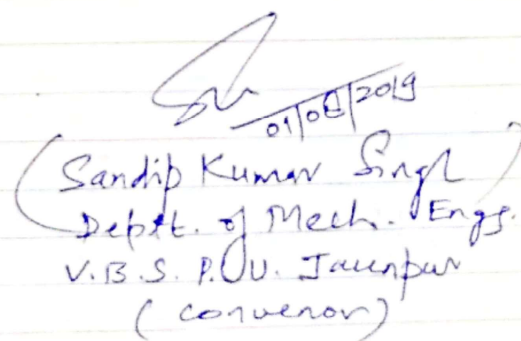 01/08/2019
(Sandip Kumar Singh)
Deptt. of Mech. Engg.
V.B.S. P.U. Jaunpur
(Convenor)